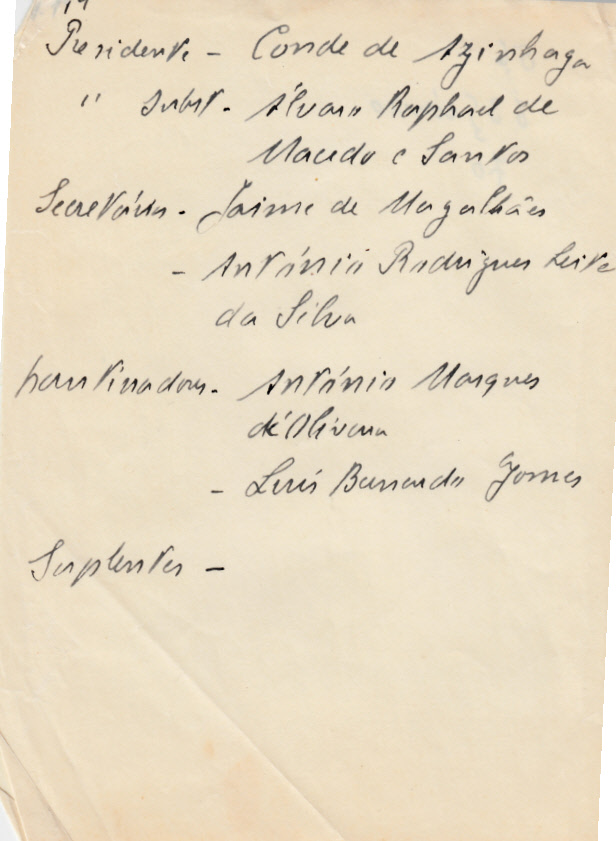 Presidente - Conde de Azinhaga
" Subst. - Álvaro Raphael de
Macedo e Santos
Secretários - Jaime de Magalhães
- António Rodrigues Leite
da Silva
- António Marques
d'Oliveira
- Luís Bernardo Gomes
Suplentes -